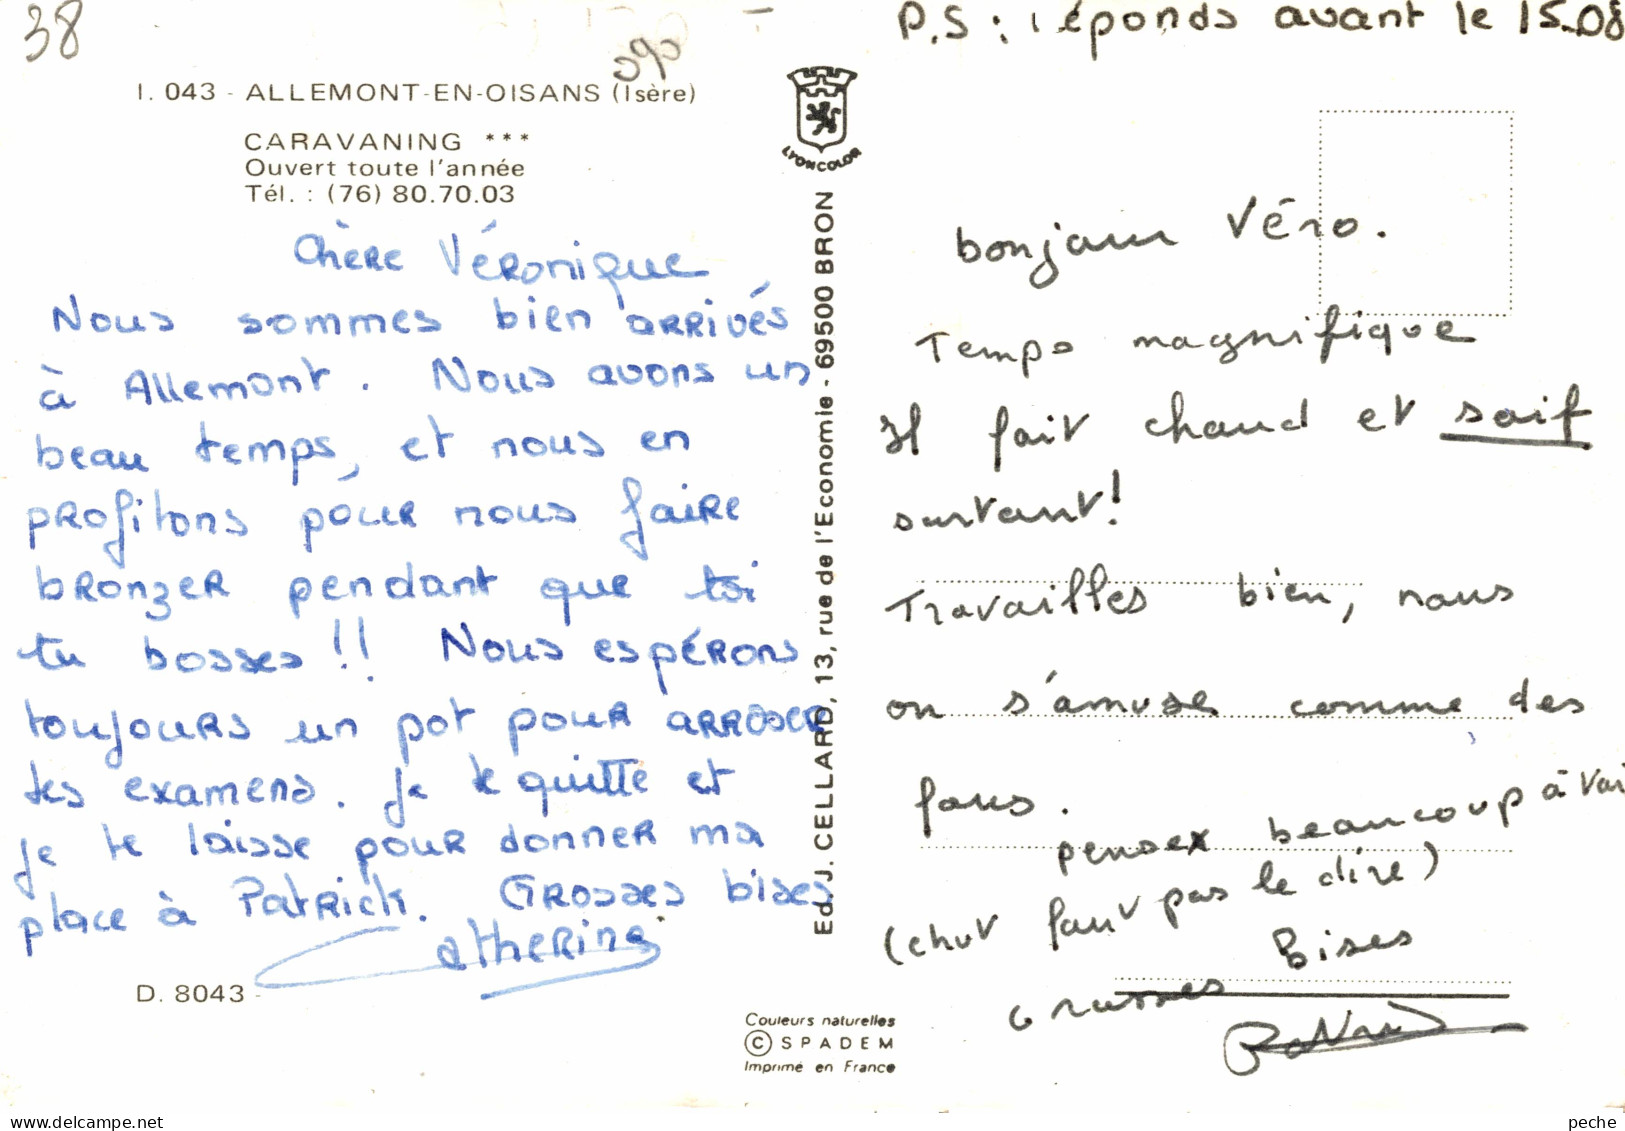 38
I. 043 - ALLEMONT-EN-OISANS (Isère)
CARAVANING ***
Ouvert toute l'année
Tél. : (76) 80.70.03
Chère Véronique
Nous sommes bien arrivés
à Allemont. Nous avons un
beau temps, et nous en
profitons pour nous faire
bronzer pendant que toi
tu bosses !! Nous espérons
toujours un pot pour arroser
tes examens. Je te quitte et
je te laisse pour donner ma
place à Patrick. Grosses bises
Catherine
D. 8043 -
LYONCOLOR
Ed. J. CELLARD, 13, rue de l'Economie - 69500 BRON
Couleurs naturelles
© SPADEM
Imprimé en France
P.S : réponds avant le 15-08
bonjour Véro.
Temps magnifique
Il fait chaud et soif
surtout !
Travailles bien, nous
on s'amuse comme des
fous.
pensex beaucoup à toi
(chut faut pas le dire)
Grosses Bises
peche